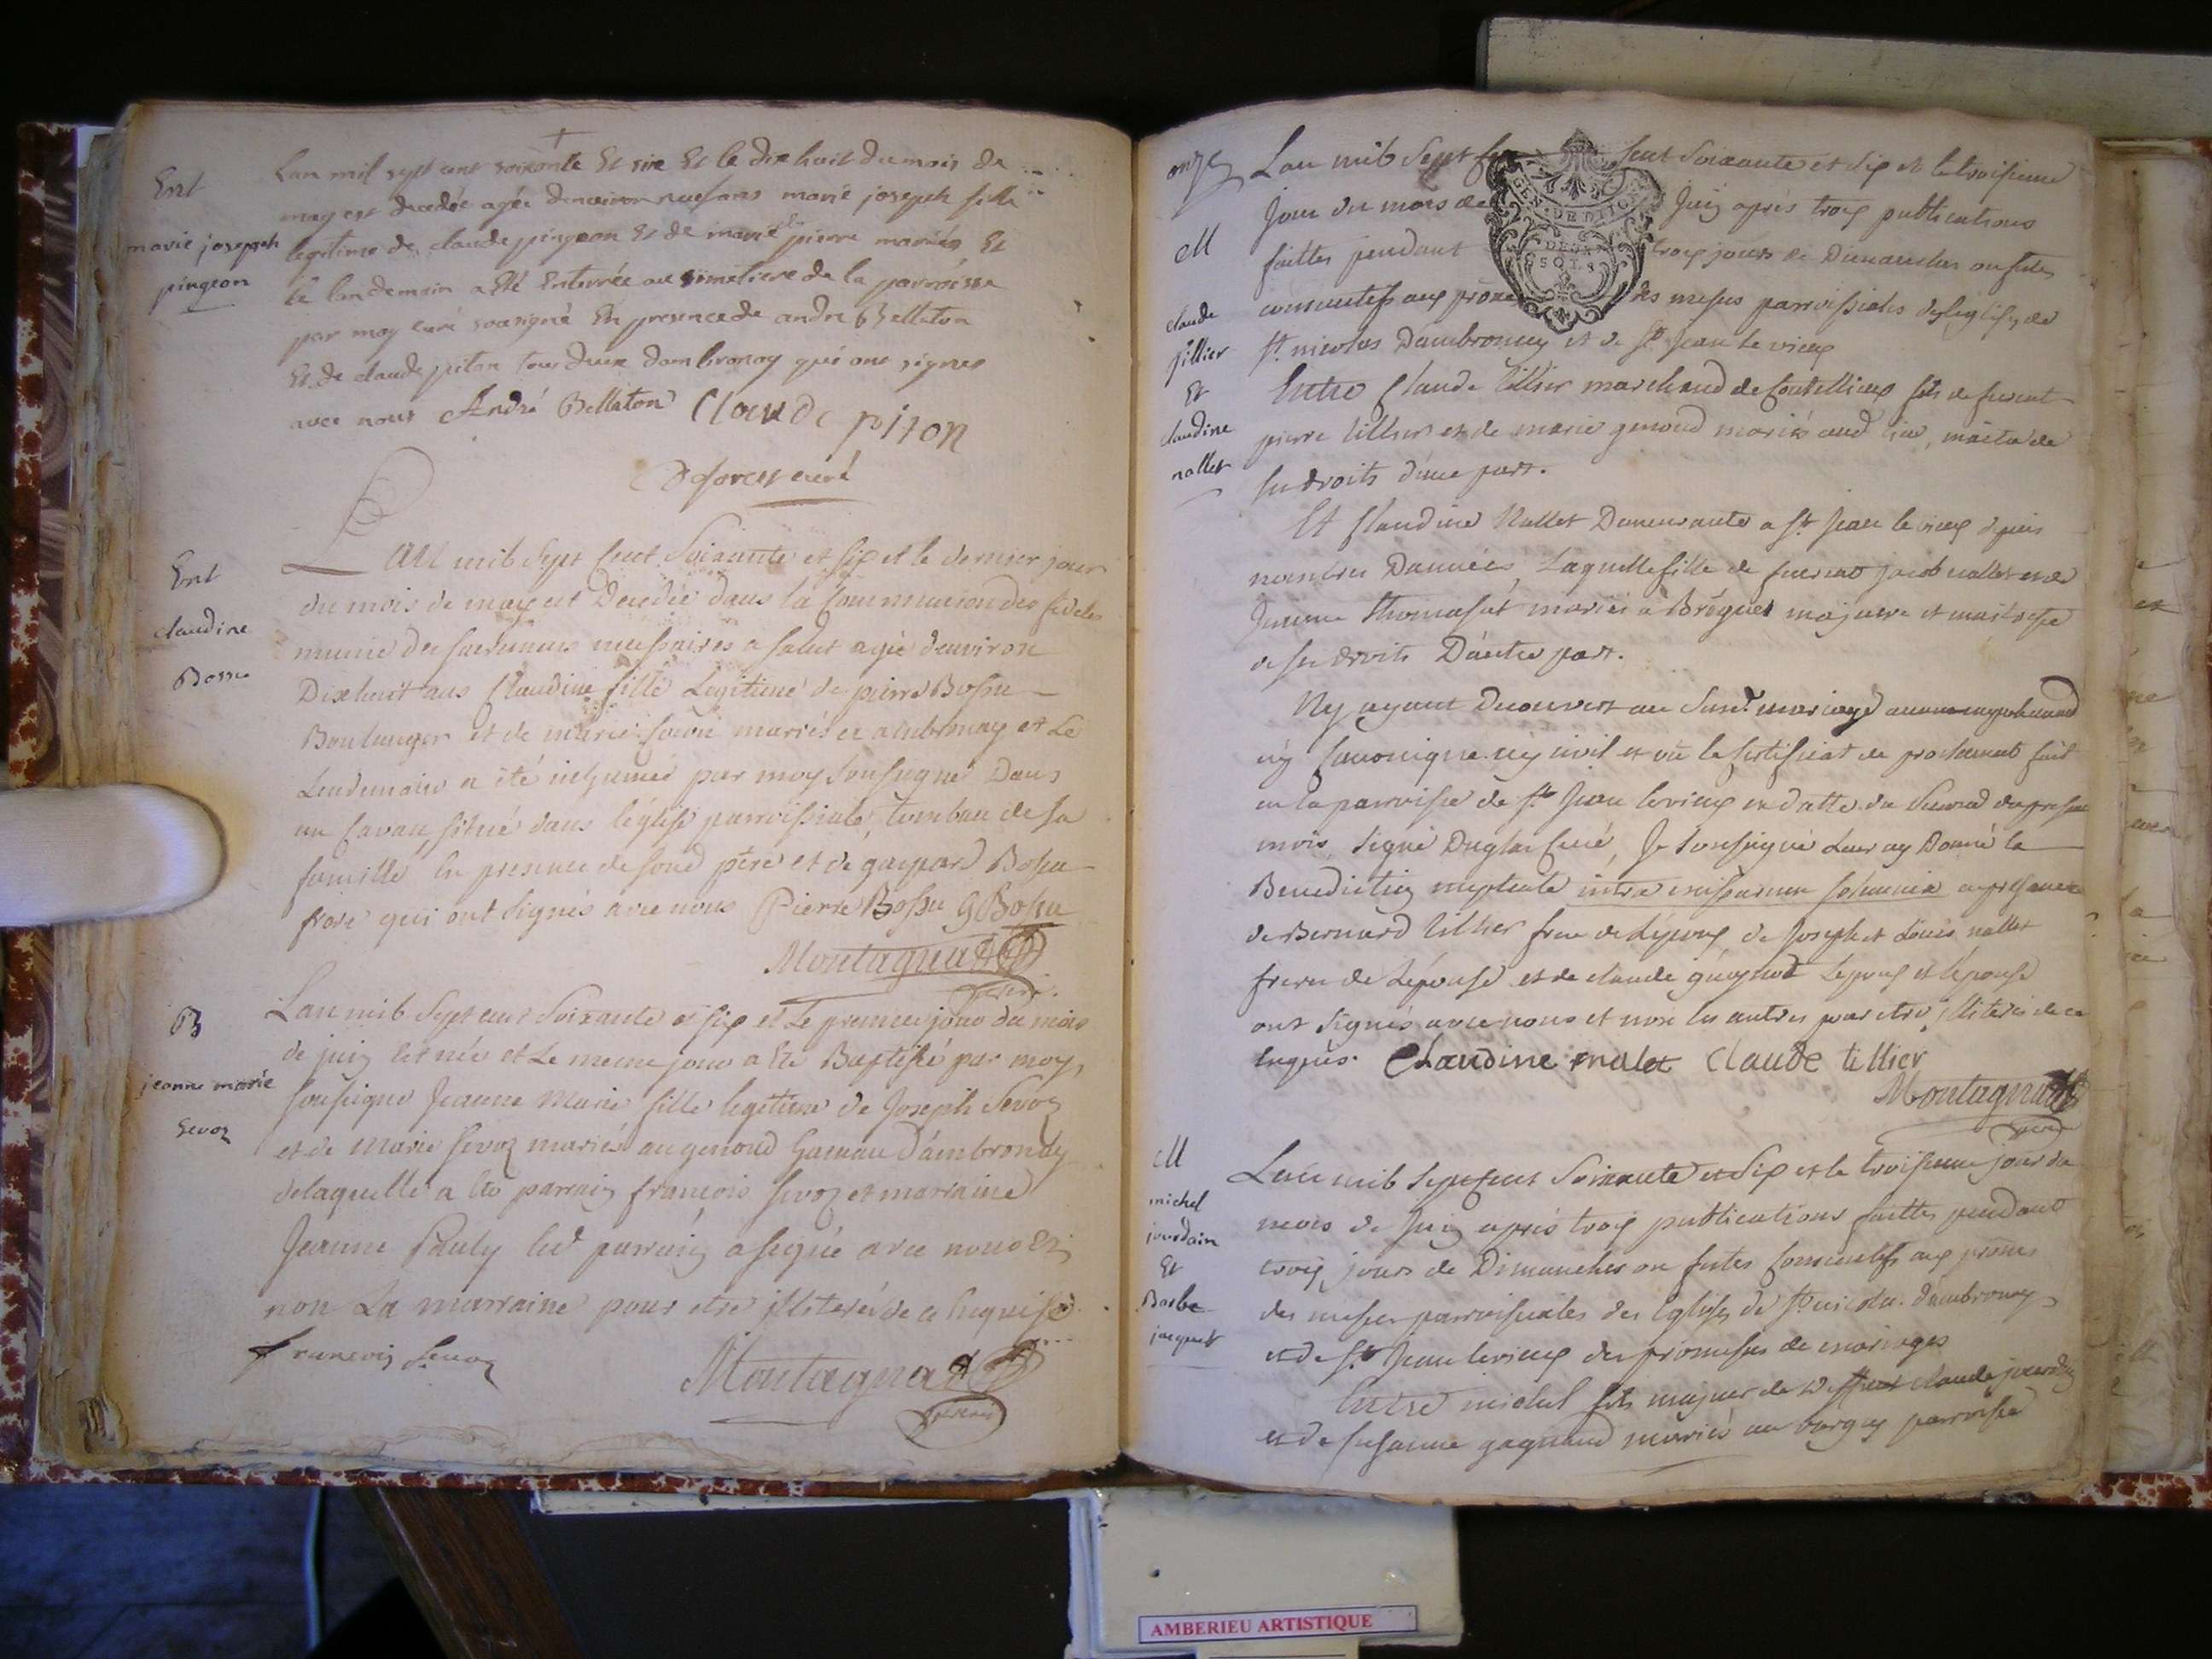 Ent
marie joseph
pingeon
Lan mil sept cent soixante Et six Et le dix huit du mois de
may est decedée agée denviron neuf ans marie joseph fille
legitime de claude pingeon Et de marie pierre mariés Et
le landemain a Eté Enterrée au simetiere de la parroisse
par moy curé sousigné En presence de andre Bellaton
Et de claude piton tous deux dambronay qui ont signes
avec nous André Bellaton Claude piton
curé
Ent
claudine
Bossu
Lan mil Sept Cent Soixante et six et le dernier jour
du mois de may est Decedée dans la Communion des fideles
munie des sacremens necessaires a salut agée d'environ
Dixhuit ans Claudine fille Legitime de pierre Bossu
Boulanger et de marie mariés a ambronay et Le
Lendemain a été inhumée par moy Soussigné Dans
un Caveau, situé dans l'église parroissiale, tombeau de sa
famille En presence de sond père et de gaspard Bossu
frere qui ont signés avec nous Pierre Bossu G Bossu
Montagnat
vicaire
B
jeanne marie
Sevoz
Lan mil Sept cent Soixante et six et Le premier jour du mois
de juin est née et Le meme jour a Eté Baptisée par moy
soussigné Jeanne Marie fille legitime de Joseph Sevoz
et de Marie Sevoz mariés au genoud hameau d'ambronay
delaquelle a Eté parrain françois Sevoz et marraine
Jeanne Pauly led parrain a signé avec nous Et
non La marraine pour etre illiterée de ce enquise
francois Sevoz
Montagnat
vicaire
onze
M
claude
tillier
Et
claudine
nallet
GEN. DE DIJON
DEUX
SOLS
Lan mil Sept Cent Soixante et Six et le troisieme
Jour du mois de Juin après trois publications
faittes pendant trois jours de Dimanches ou fetes
consecutifs aux prones des messes parroissiales des Eglises de
St. nicolas Dambronay et de St. Jean le vieux
Entre Claude tillier marchand de fils de
pierre tillier et de marie genoud mariés aud lieu, maitre de
ses droits d'une part.
Et Claudine Nallet Demeurante a St. Jean le vieux depuis
nombre D'années, Laquelle fille de jacob nallet et de
Jeanne Thomasat mariés a majeure et maitresse
de ses droits D'autre part.
N'y ayant Decouvert au Susd. mariage aucun empechement
n'y Canonique n'y civil et vû le Certificat de proclamat fait
en la parroisse de St. Jean levieux en datte du Second du present
mois, signé Duglas Curé, Je soussigné Leur ay Donné la
Benediction nuptiale intra missarum solemnia en presence
de Bernard tillier frere de L'epoux, de Joseph et Louis nallet
freres de L'epouse et de claude Lepoux et L'epouse
ont signés avec nous et non les autres pour etre illiterés de ce
enquis. Claudine nalet Claude tillier
Montagnat
vicaire
M
michel
jourdain
Et
Barbe
jacquet
Lan mil Sept Cent Soixante et Six et le troisieme jour du
mois de Juin après trois publications faittes pendant
trois jours de Dimanches ou fetes Consecutifs aux prones
des messes parroissiales des Eglises de St. nicolas d'ambronay
et de St. Jean levieux des promesses de mariages
Entre michel fils majeur de claude jourdain
et de susanne gagnaud mariés au parroisse
AMBERIEU ARTISTIQUE